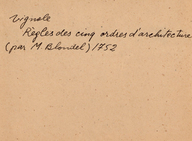 Vignole
Règles des cinq ordres d'architecture
(par M Blondel) 1752